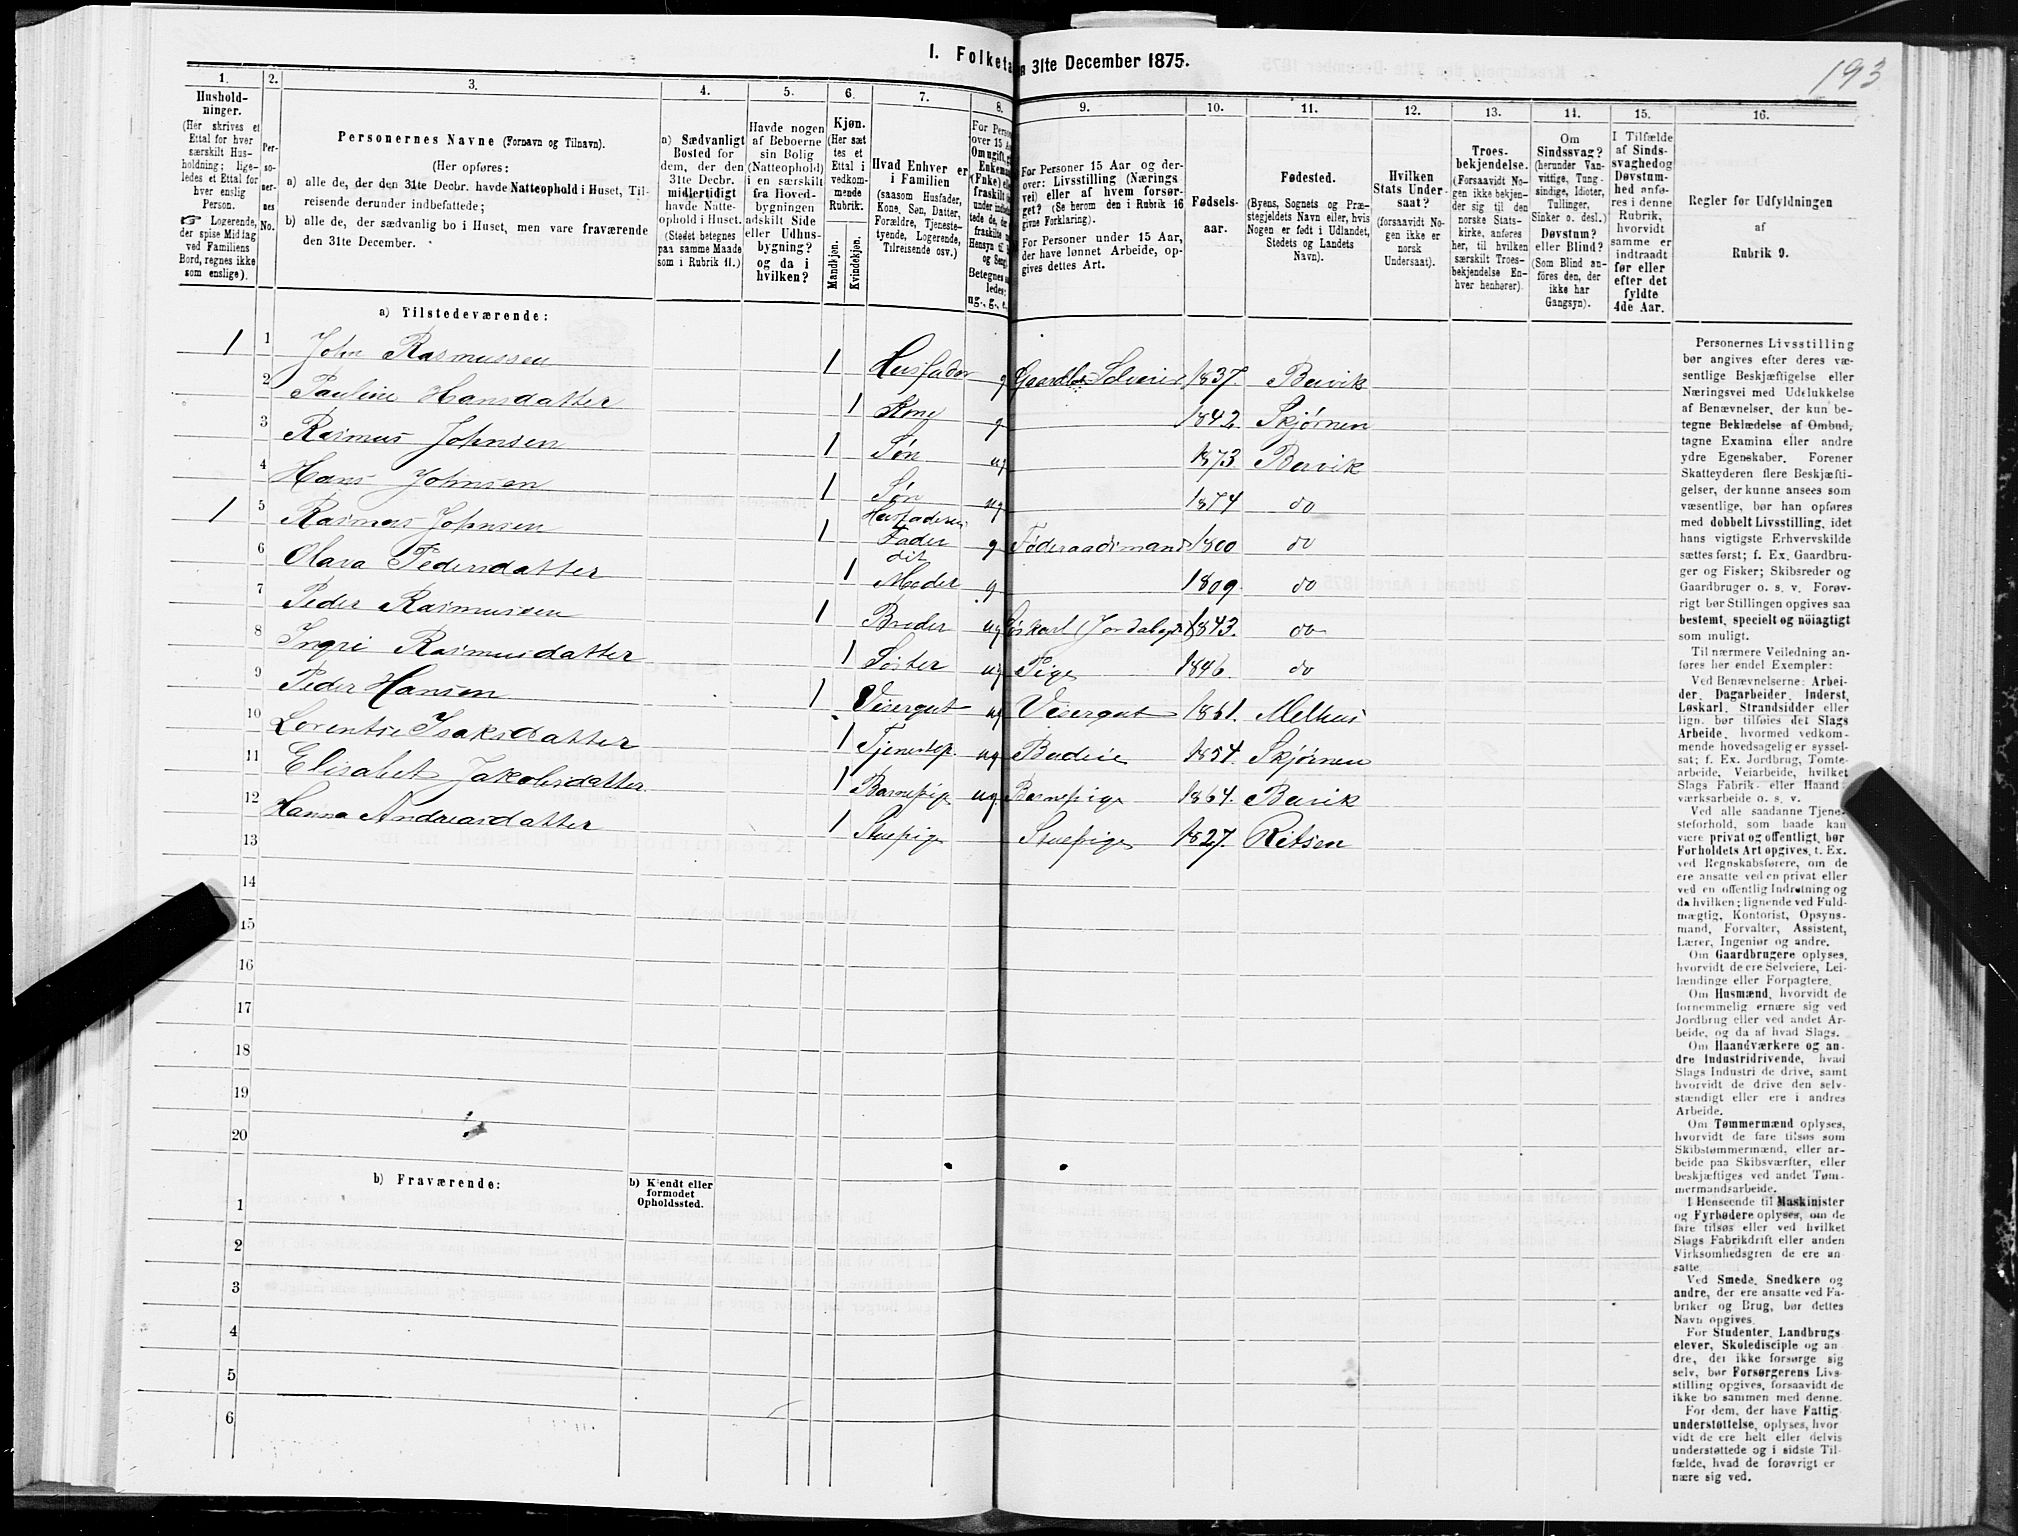 193
I. Folketa
n 31te December 1875.
1. 2. 3. 4. 5. 6. 7. 8. 9. 10. 11. 12. 13. 14. 15. 16.
Hushold-
ninger.
(Her skrives et
Ettal for hver
særskilt Hus-
holdning; lige-
ledes et Ettal for
hver enslig
Person.
☞ Logerende,
der spise Middag
ved Familiens
Bord, regnes ikke
som enslige).
Per-
so-
ner-
nes
No.
Personernes Navne (Fornavn og Tilnavn).
(Her opføres:
a) alle de, der den 31te Decbr. havde Natteophold i Huset, Til-
reisende derunder indbefattede;
b) alle de, der sædvanlig bo i Huset, men vare fraværende
den 31te December.
a) Sædvanligt
Bosted for
dem, der den
31te Decbr.
midlertidigt
havde Natte-
ophold i Huset.
(Stedet betegnes
paa samme Maade
som i Rubrik 11.)
Havde nogen
af Beboerne
sin Bolig
(Natteophold)
i en særskilt
fra Hoved-
bygningen
adskilt Side
eller Udhus-
bygning?
og da i
hvilken?
Kjøn.
(Her sæt
tes et
Ettal i
vedkom-
mende
Rubrik.
Mandkjøn.
Kvindekjøn.
Hvad Enhver er
i Familien
(saasom Husfader,
Kone, Søn, Datter,
Forældre, Tjeneste-
tyende, Logerende,
Tilreisende osv.)
For Perso
over 15 A
Om ugift, g
Enkema
(Fnke) el
fraskilt
under indb
tede de, de
fraskilte
Hensyn til
og Seng
Betegnes
ledes:
ug., g., e.,
For Personer 15 Aar og der-
over: Livsstilling (Nærings
vei) eller af hvem forsør-
get? (Se herom den i Rubrik 16
givne Forklaring).
For Personer under 15 Aar,
der have lønnet Arbeide, op-
gives dettes Art.
Fødsels-
aar.
Fødested.
(Byens, Sognets og Præ-
stegjeldets Navn eller, hvis
Nogen er født i Udlandet,
Stedets og Landets
Navn).
Hvilken
Stats Under-
saat?
(forsaavidt No-
gen ikke er
norsk
Undersaat).
Troes-
bekjendelse.
(Forsaavidt No-
gen ikke bekjen-
der sig til den
norske Stats-
kirke, anføres
her, til hvilken
særskilt Troes-
bekjendelse En-
hver henhører).
Om
Sindssvag?
(herunder Van-
vittige, Tung-
sindige, Idioter,
Tullinger,
Sinker o. desl.)
Døvstum?
eller Blind?
(Som Blind an-
føres den, der
ikke har
Gangsyn).
I Tilfælde
af Sinds-
svaghedog
Døvstum-
hed anfø-
res i denne
Rubrik,
hvorvidt
samme er
indtraadt
før eller
efter det
fyldte
4de Aar.
Regler for Udfyldningen
af
Rubrik 9.
a) Tilstedeværende:
1 1 John Rasmussen 1 Husfader g Gaardbr. Selveier 1837. Bervik
2 Pauline Hansdatter 1 Kone g 1842 Skjørnen
3 Rasmus Johnsen 1 Søn ug 1873 Bervik
4 Hans Johnsen 1 Søn ug 1874 do
1 5 Rasmus Johnsen 1 Husfaderens Fader g Føderaadsmand 1800 do
6 Olava Pedersdatter 1 dit Moder g 1809. do
7 Peder Rasmussen 1 Broder ug Løskarl (Jordabeide) 1843. do
8 Ingri Rasmusdatter 1 Søster ug Pige 1846. do
9 Peder Hansen 1 Visergut ug Visergut 1861. Melhus
10 Lorentse Isaksdatter 1 Tjenestep. ug Budeie 1854. Skjørnen
11 Elisabet Jakobsdatter 1 Barnepige ug Barnepige 1864. Bervik
12 Hanna Andreasdatter 1 Stuepige Stuepige 1827. Ritsen
13
14
15
16
17
18
19
20
b) Fraværende:
b) Kjendt eller
formodet
Opholdssted.
1
2
3
4
5
6
Personernes Livsstilling
bør angives efter deres væ-
sentlige Beskjæftigelse eller
Næringsvei med Udelukkelse
af Benævnelser, der kun be-
tegne Beklædelse af Ombud,
tagne Examina eller andre
ydre Egenskaber. Forener
Skatteyderen flere Beskjæfti-
gelser, der kunne ansees som
væsentlige, bør han opføres
med dobbelt Livsstilling, idet
hans vigtigste Erhvervskilde
sættes først; f. Ex. Gaardbru-
ger og Fisker; Skibsreder og
Gaardbruger o. s. v. Forøv-
rigt bør Stillingen opgives saa
bestemt, specielt og nöiagtigt
som muligt.
Til nærmere Veiledning an-
føres her endel Exempler:
Ved Benævnelserne: Arbei-
der, Dagarbeider, Inderst,
Løskarl, Strandsidder eller
lign. bør tilføies det Slags
Arbeide, hvormed vedkom-
mende hovedsagelig er syssel-
sat; f. Ex. Jordbrug, Tomte-
arbeide, Veiarbeide, hvilket
Slags Fabrik- eller Haand-
værksarbeide o. s. v.
Ved alle saadanne Tjene-
steforhold, som baade kan
være privat og offentligt, bør
Forholdets Art opgives, f. Ex.
ved Regnskabsførere, om de
ere ansatte ved en privat eller
ved en offentlig Indretning og
da hvilken; lignende ved Fuld-
mægtig, Kontorist, Opsyns-
mand, Forvalter, Assistent,
Lærer, Ingeniør og andre.
Om Gaardbrugere oplyses,
hvorvidt de ere Selveiere, Lei-
lændinge eller Forpagtere.
Om Husmænd, hvorvidt de
fornemmelig ernære sig ved
Jordbrug eller ved andet Ar-
beide, og da af hvad Slags.
Om Haandværkere og an-
dre Industridrivende, hvad
Slags Industri de drive, samt
hvorvidt de drive den selv-
stændigt eller ere i andres
Arbeide.
Om Tømmermænd oplyses,
hvorvidt de fare tilsøs som
Skibstømmermænd, eller ar-
beide paa Skibsværfter, eller
beskjæftiges ved andet Tøm-
mermandsarbeide.
I Henseende til Maskinister
og Fyrbødere oplyses, om de
fare tilsøs eller ved hvilket
Slags Fabrikdrift eller anden
Virksomhedsgren de ere an-
satte.
Ved Smede, Snedkere og
andre, der ere ansatte ved Fa-
briker og Brug, bør dettes
Navn opgives.
For Studenter, Landbrugs-
elever, Skoledisciple og an-
dre, der ikke forsørge sig
selv, bør Forsørgerens Livs-
stilling opgives, forsaavidt de
ikke bo sammen med denne.
For dem, der have Fattig-
understøttelse, oplyses, hvor
vidt de ere helt eller delvis
understøttede og i sidste Til-
fælde, hvad de forøvrigt er
nære sig ved.